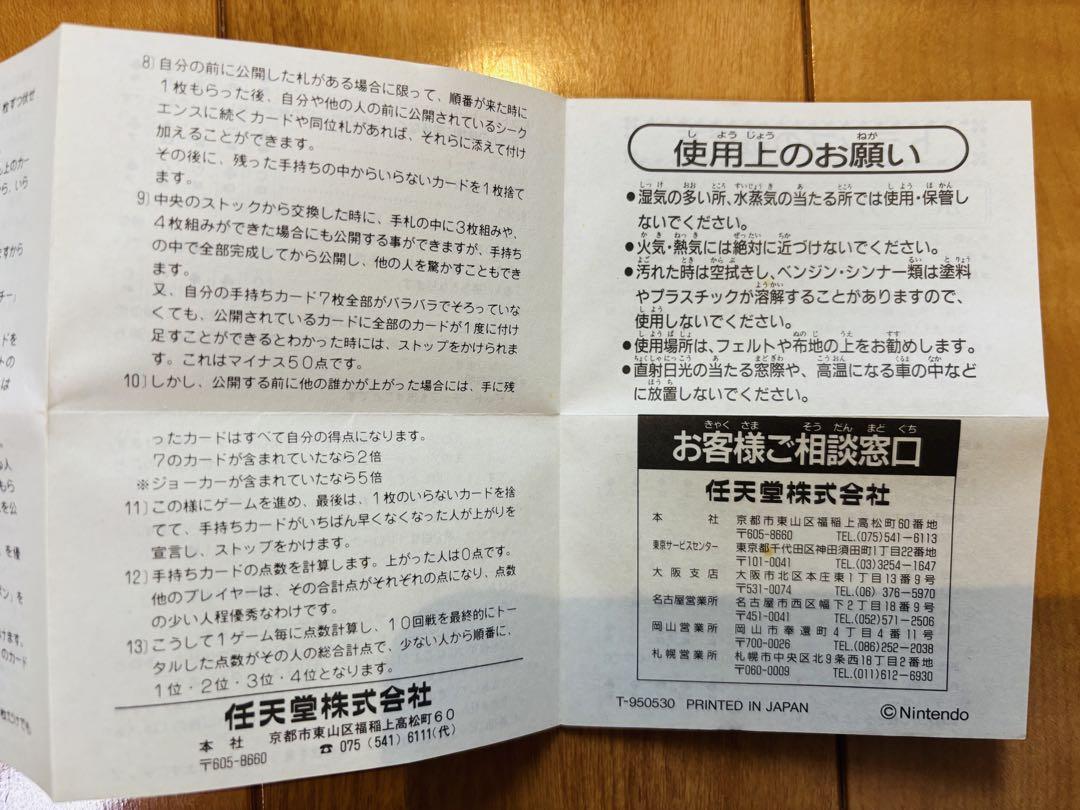 8)自分の前に公開した札がある場合に限って、順番が来た時に
1枚もらった後、自分や他の人の前に公開されているシーク
エンスに続くカードや同位札があれば、それらに添えて付け
加えることができます。
その後に、残った手持ちの中からいらないカードを1枚捨て
ます。
9)中央のストックから交換した時に、手札の中に3枚組みや、
4枚組みができた場合にも公開する事ができますが、手持ち
の中で全部完成してから公開し、他の人を驚かすこともでき
ます。
又、自分の手持ちカード7枚全部がバラバラでそろっていな
くても、公開されているカードに全部のカードが1度に付け
足すことができるとわかった時には、ストップをかけられま
す。これはマイナス50点です。
10)しかし、公開する前に他の誰かが上がった場合には、手に残
ったカードはすべて自分の得点になります。
7のカードが含まれていたなら2倍
※ジョーカーが含まれていたなら5倍
11)この様にゲームを進め、最後は、1枚のいらないカードを捨
てて、手持ちカードがいちばん早くなくなった人が上がりを
宣言し、ストップをかけます。
12)手持ちカードの点数を計算します。上がった人は0点です。
他のプレイヤーは、その合計点がそれぞれの点になり、点数
の少い人程優秀なわけです。
13)こうして1ゲーム毎に点数計算し、10回戦を最終的にトー
タルした点数がその人の総合計点で、少ない人から順番に、
1位・2位・3位・4位となります。
任天堂株式会社
本社 京都市東山区福稲上高松町60
〒605-8660 ☎075(541)6111(代)
しようじょう ねが
使用上のお願い
しっけ おお ところ すいじょうき あ ところ しよう ほかん
●湿気の多い所、水蒸気の当たる所では使用・保管し
ないでください。
かき ねっき ぜったい ちか
●火気・熱気には絶対に近づけないでください。
よご とき からぶ るい とりょう
●汚れた時は空拭きし、ベンジン・シンナー類は塗料
ようかい
やプラスチックが溶解することがありますので、
しよう
使用しないでください。
しようばしょ ぬのじ うえ すす
●使用場所は、フェルトや布地の上をお勧めします。
ちょくしゃにっこう あ まどぎわ こうおん くるま なか
●直射日光の当たる窓際や、高温になる車の中など
ほうち
に放置しないでください。
きゃくさま そうだんまどぐち
お客様ご相談窓口
任天堂株式会社
本社 京都市東山区福稲上高松町60番地
〒605-8660 TEL.(075)541-6113
東京サービスセンター 東京都千代田区神田須田町1丁目22番地
〒101-0041 TEL.(03)3254-1647
大阪支店 大阪市北区本庄東1丁目13番9号
〒531-0074 TEL.(06)376-5970
名古屋営業所 名古屋市西区幅下2丁目18番9号
〒451-0041 TEL.(052)571-2506
岡山営業所 岡山市奉還町4丁目4番11号
〒700-0026 TEL.(086)252-2038
札幌営業所 札幌市中央区北9条西18丁目2番地
〒060-0009 TEL.(011)612-6930
T-950530 PRINTED IN JAPAN
©Nintendo